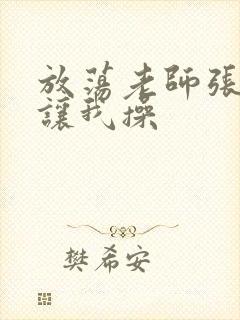 放蕩老師張
讓我操
樊希安